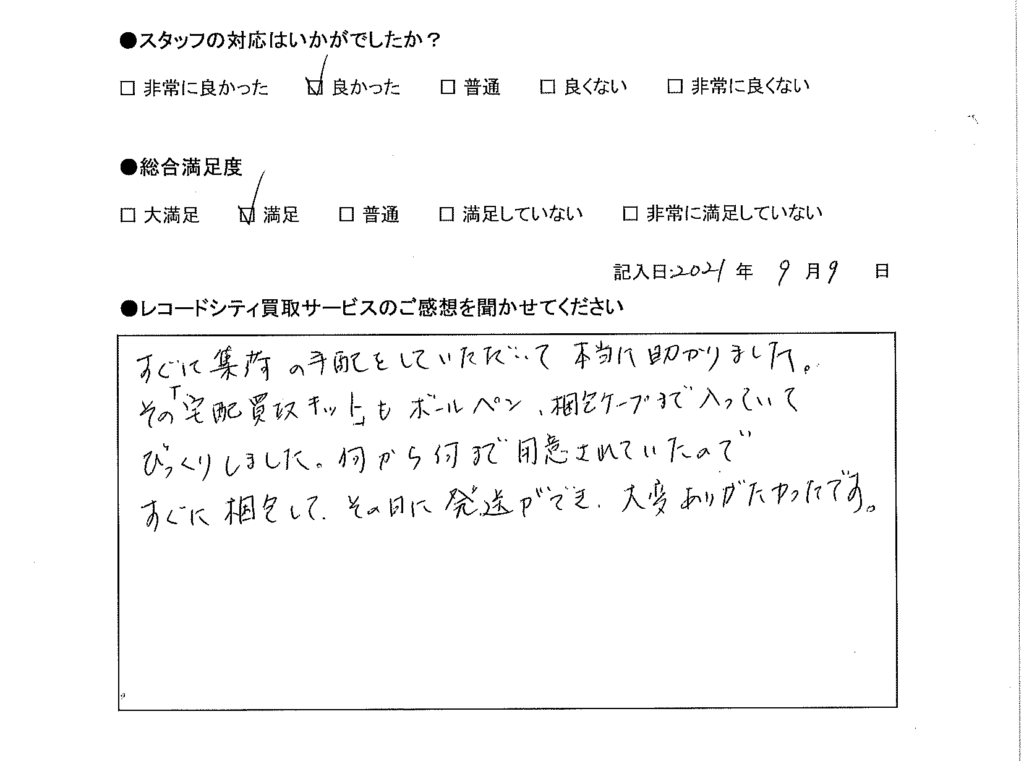 ●スタッフの対応はいかがでしたか？
□ 非常に良かった ☑ 良かった □ 普通 □ 良くない □ 非常に良くない
●総合満足度
□ 大満足 ☑ 満足 □ 普通 □ 満足していない □ 非常に満足していない
記入日:2021 年 9 月 9 日
●レコードシティ買取サービスのご感想を聞かせてください
すぐに集荷の手配をしていただいて本当に助かりました。
その「宅配買取キット」もボールペン、梱包テープまで入っていて
びっくりしました。何から何まで用意されていたので
すぐに梱包して、その日に発送ができ、大変ありがたかったです。